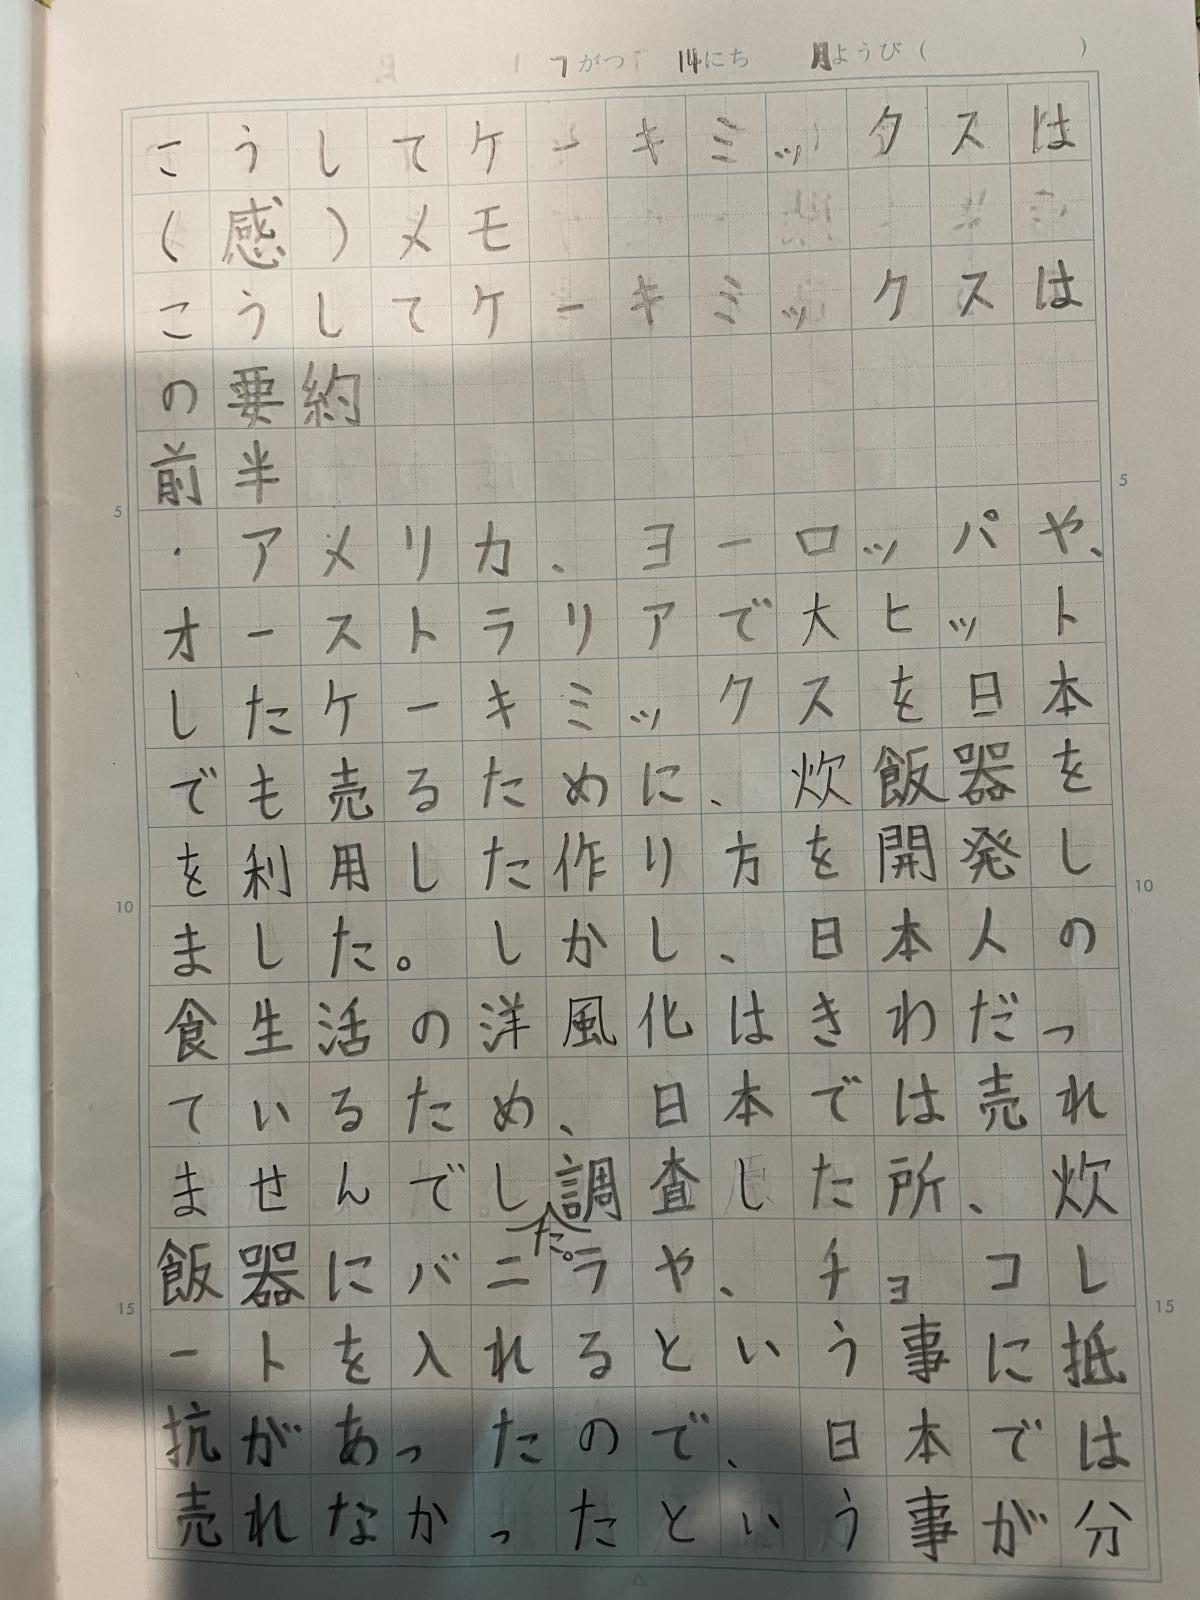 7がつ 14にち 月ようび( )
こうしてケーキミックスは
(感)メモ
こうしてケーキミックスは
の要約
前半
・アメリカ、ヨーロッパや、
オーストラリアで大ヒット
したケーキミックスを日本
でも売るために、炊飯器を
を利用した作り方を開発し
ました。しかし、日本人の
食生活の洋風化はきわだっ
ているため、日本では売れ
ませんでした。調査した所、炊
飯器にバニラや、チョコレ
ートを入れるという事に抵
抗があったので、日本では
売れなかったという事が分
5
10
15
5
10
15